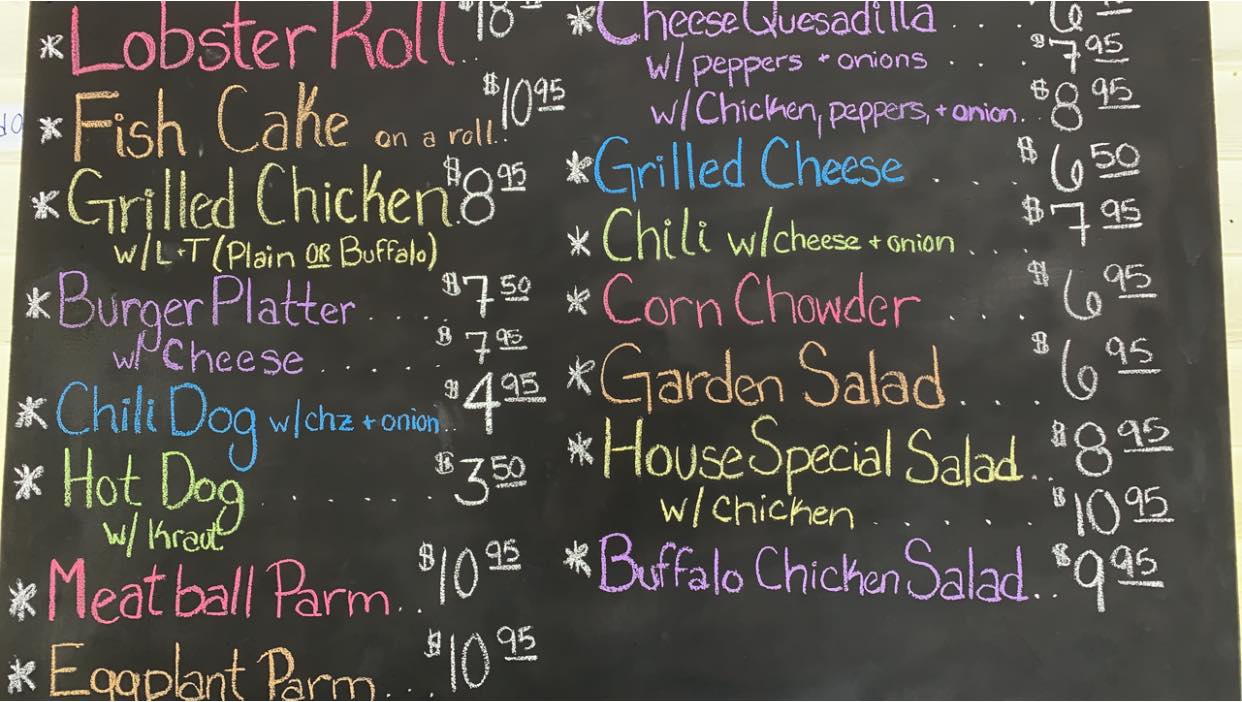 * Lobster Roll..
* Fish Cake on a roll.. $10 95
* Grilled Chicken. $8 95
w/L+T (Plain OR Buffalo)
* Burger Platter ..... $7 50
w/ Cheese ...... $7 95
* Chili Dog w/chz + onion.. $4 95
* Hot Dog ....... $3 50
w/ Kraut
* Meatball Parm.. $10 95
* Eggplant Parm... $10 95
* Cheese Quesadilla ...
w/ peppers + onions .... $7 95
w/ Chicken, peppers, + onion.. $8 95
* Grilled Cheese .... $6 50
* Chili w/cheese + onion .. $7 95
* Corn Chowder .... $6 95
* Garden Salad.... $6 95
* House Special Salad.. $8 95
w/ Chicken ...... $10 95
* Buffalo Chicken Salad.. $9 95